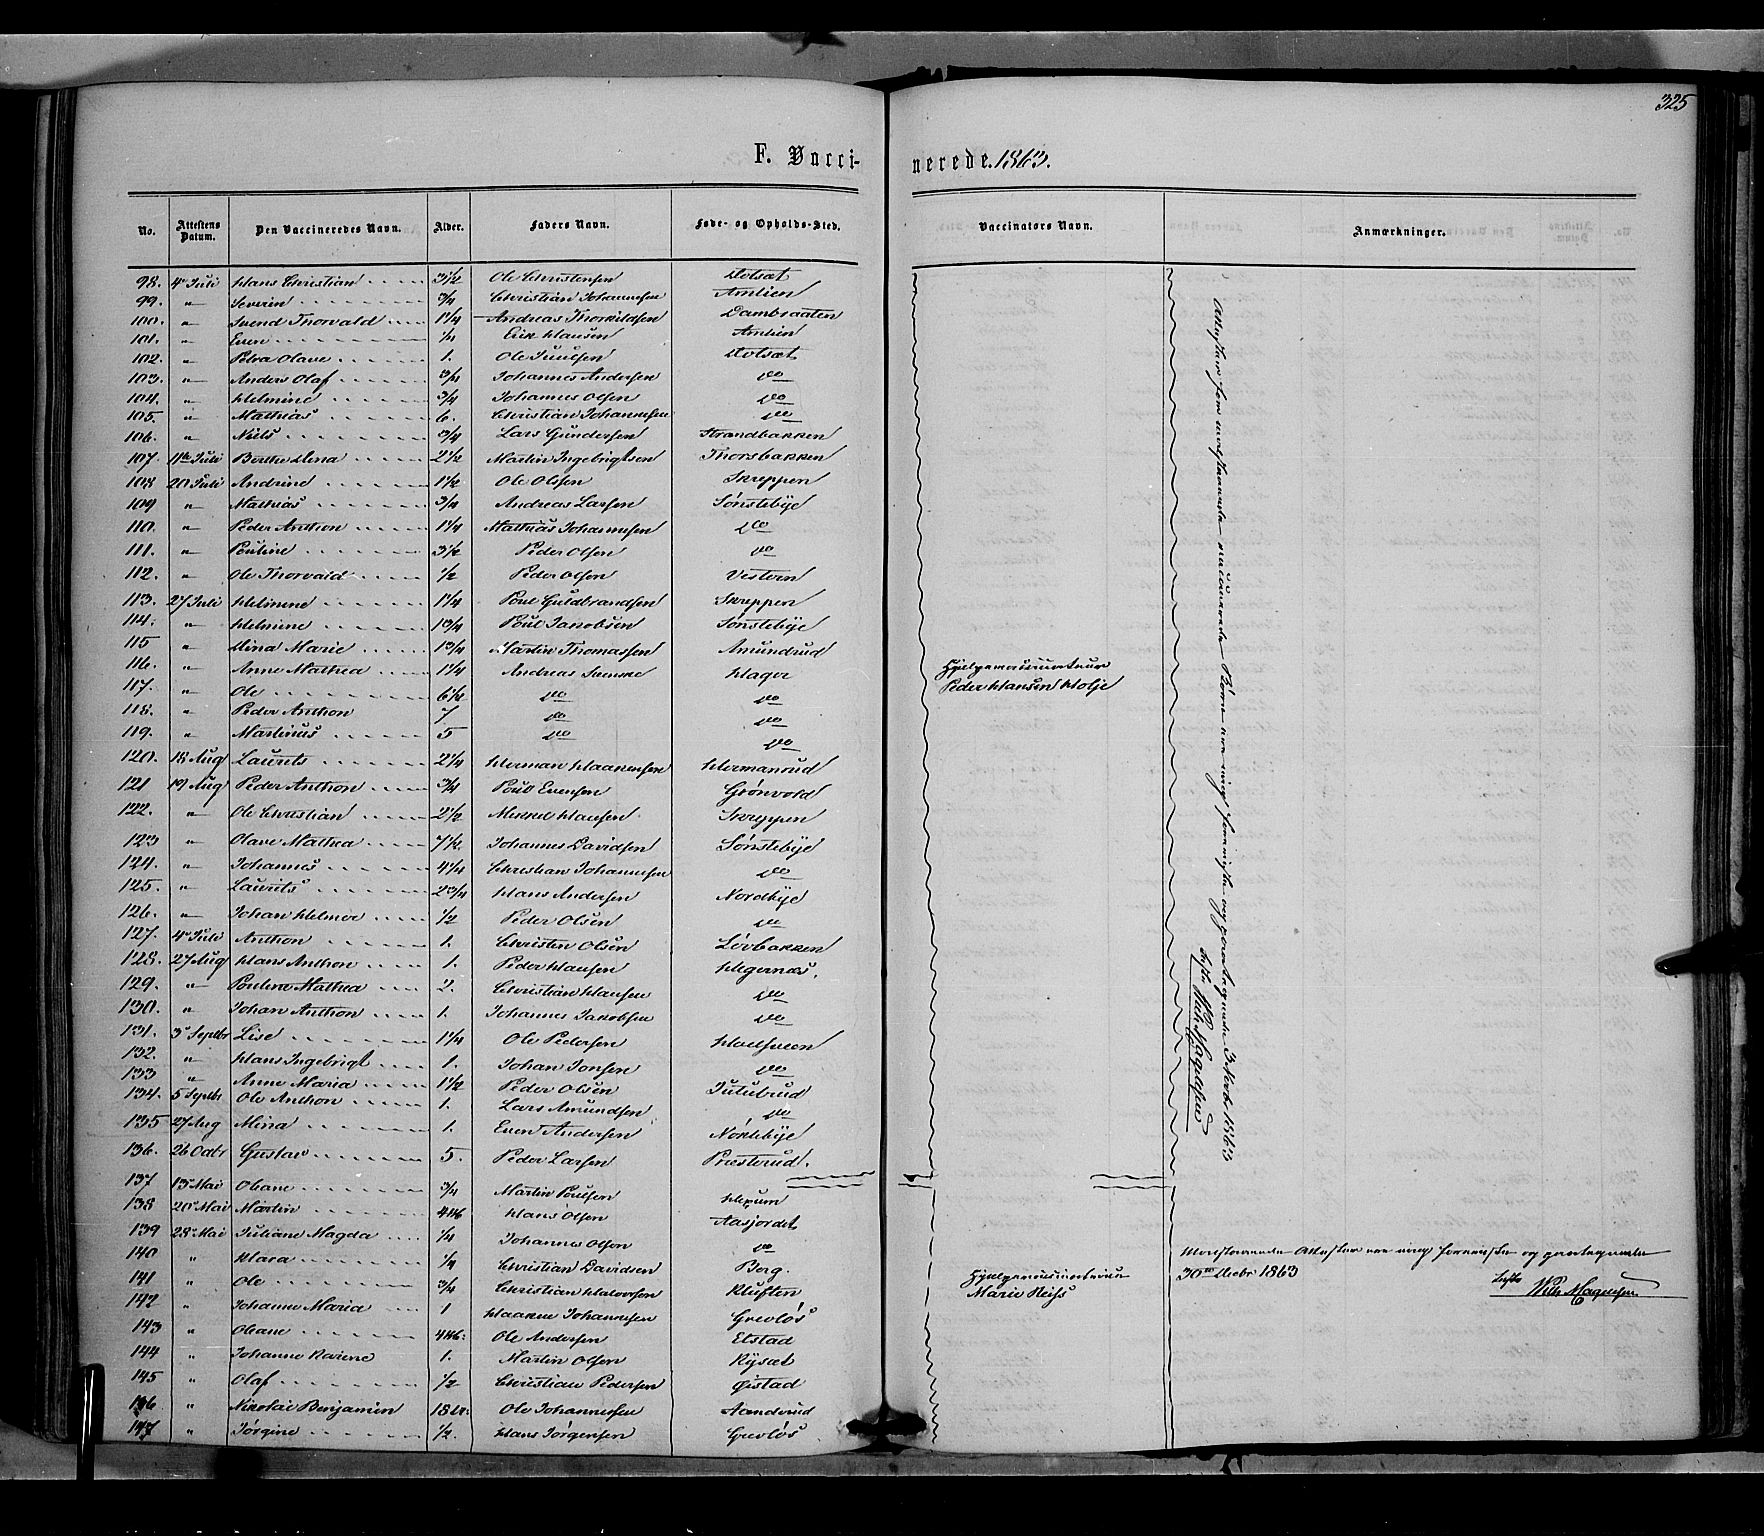 325
F. Vaccinerede. 1863.
No. Attestens Datum. Den Vaccineredes Navn. Alder. Faders Navn. Føde- og Opholds-Sted. Vaccinators Navn. Anmærkninger.
98. 4 Juli Hans Christian 3 1/2 Ole Christensen Holsæt
99. " Severin 3/4 Christian Johannesen Amlien
100. " Svend Thorvald 1 1/4 Andreas Thorkildsen Dambraaten
101. " Even 1/4 Erik Hansen Amlien
102. " Petra Olave 1. Ole Juulsen Holsæt
103. " Anders Olaf 3/4 Johannes Andersen do
104. " Helmine 3/4 Johannes Olsen do
105. " Mathias 6. Christian Johannesen do
106. " Niels 3/4 Lars Gundersen Strandbakken
107. 11te Juli Berthe Dina 2 1/2 Martin Ingebrigtsen Thorsbakken
108 20 Juli Andrine 1 1/2 Ole Olsen Skreppen
109 " Mathias 3/4 Andreas Larsen Sønstebye
110. " Peder Anthon 1 1/4 Mathias Johannesen do
111. " Pouline 3 1/2 Peder Olsen do
112. " Ole Thorvald 1/2 Peder Olsen Vestern
113. 27 Juli Helmine 1 1/4 Poul Guldbrandsen Skreppen
114. " Helmine 1 3/4 Poul Jacobsen Sønstebye
115 " Dina Marie 1 3/4 Martin Thomassen Amundrud
116. " Anne Mathea 1 1/4 Andreas Svenske Hager Hjelpevaccinateur
117. " Ole 6 1/2 do do Peder Hansen Holje
118. " Peder Anthon 7 do do
119. " Martinus 5 do do
120. 18 Aug Laurits 2 1/4 Herman Haakensen Hermanrud
121 19 Aug Peder Anthon 3/4 Poul Evensen Grønvold
122. " Ole Christian 2 1/2 Mikkel Hansen Skreppen
123 " Olave Mathea 7 1/2. Johannes Davidsen Sønstebye
124. " Johannes 4 1/4 Christian Johannesen do
125. " Laurits 2 3/4 Hans Andersen Nordbye
126. " Johan Helmer 1/2 Peder Olsen do
127. 4 Juli Anthon 1. Christen Olsen Løvbakken
128. 27 Aug Hans Anthon 1. Peder Hansen Hegernæs.
129. " Pouline Mathea 2. Christian Hansen do
130. " Johan Anthon 1. Johannes Jakobsen do
131. 3 Septbr Lise 1 1/4 Ole Pedersen Hoelsveen
132. " Hans Ingebrigt 1. Johan Jonsen do
133 " Anne Maria 1 1/2 Peder Olsen Jutulrud
134. 5 Septbr Ole Anthon 1. Lars Amundsen do
135 27 Aug Mina 1. Even Andersen Nøklebye
136. 26 Octbr Gustav 5. Peder Larsen Presterud.
137 13 Mai Oleane 3/4 Martin Poulsen Hexum
138 20 Mai Martin 4 Hans Olsen Aasjordet
139 28 Mai Juliane Magda 1/4 Johannes Olsen do
140 " Klara 1/4 Christian Davidsen Berg.
141 " Ole 3/4 Christian Halvorsen Kluften Hjelpevaccinatrice
142 " Johanne Maria 1 Haaken Johannesen Grevløs Marie Neiss
143 " Oleane 4 Ole Andersen Elstad
144 " Johanne Karine 1. Martin Olsen Rysæt
145 " Olaf 1/2 Christian Pedersen Øistad
146 " Nikolai Benjamin 18 Ole Johannesen Aanderud
147 " Jørgine 1/2. Hans Jørgensen Grevløs
Attester for modstaaende vaccinerede Børn ere mig foreviste og paategnede 3 Novb. 1863
Modstaaende Attester ere mig foreviste og paategnede
30te Decbr 1863